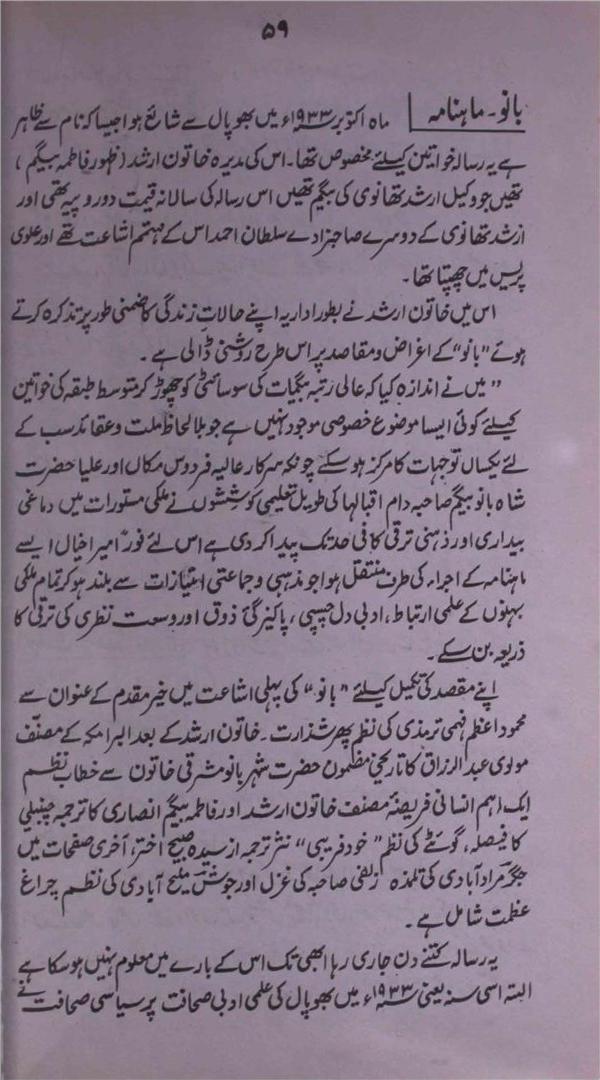 ۵۹
بانو۔ ماہنامہ
ماہ اکتوبر ۱۹۳۳ء میں بھوپال سے شائع ہوا جیسا کہ نام سے ظاہر
ہے یہ رسالہ خواتین کیلئے مخصوص تھا۔ اس کی مدیرہ خاتون ارشد (ظہور فاطمہ بیگم)
تھیں جو وکیل ارشد تھانوی کی بیگم تھیں اس رسالہ کی سالانہ قیمت دو روپیہ تھی اور
ارشد تھانوی کے دوسرے صاحبزادے سلطان احمد اس کے مہتمم اشاعت تھے اور علوی
پریس میں چھپتا تھا۔
اس میں خاتون ارشد نے بطور اداریہ اپنے حالات زندگی کا ضمنی طور پر تذکرہ کرتے
ہوئے "بانو" کے اغراض و مقاصد پر اس طرح روشنی ڈالی ہے۔
"میں نے اندازہ کیا کہ عالی رتبہ بیگمات کی سوسائٹی کو چھوڑ کر متوسط طبقہ کی خواتین
کیلئے کوئی ایسا موضوع خصوصی موجود نہیں ہے جو بلا لحاظ ملت و عقائد سب کے
لئے یکساں توجہات کا مرکز ہو سکے چونکہ سرکار عالیہ فردوس مکاں اور علیا حضرت
شاہ بانو بیگم صاحبہ دام اقبالہا کی طویل تعلیمی کوششوں نے ملکی مستورات میں دماغی
بیداری اور ذہنی ترقی کافی حد تک پیدا کر دی ہے اس لئے فوراً میرا خیال ایسے
ماہنامہ کے اجراء کی طرف منتقل ہوا جو مذہبی و جماعتی امتیازات سے بلند ہو کر تمام ملکی
بہنوں کے علمی ارتباط، ادبی دل چسپی، پاکیزگیٔ ذوق اور وسعت نظری کی ترقی کا
ذریعہ بن سکے۔
اپنے مقصد کی تکمیل کیلئے "بانو" کی پہلی اشاعت میں خیر مقدم کے عنوان سے
محمود اعظم فہمی ترمذی کی نظم پھر شذارت۔ خاتون ارشد کے بعد البرامکہ کے مصنف
مولوی عبد الرزاق کا تاریخی مضمون حضرت شہر بانو مشرقی خاتون سے خطاب نظم
ایک اہم انسانی فریضۂ مصنف خاتون ارشد اور فاطمہ بیگم انصاری کا ترجمہ چنبیلی
کا فیصلہ، گوئٹے کی نظم "خود فریبی" نثر ترجمہ از سیدہ صبیح اختر، آخری صفحات میں
جگر مراد آبادی کی تلمذہ زلفی صاحبہ کی غزل اور جوش ملیح آبادی کی نظم چراغ
عظمت شامل ہے۔
یہ رسالہ کتنے دن جاری رہا ابھی تک اس کے بارے میں معلوم نہیں ہو سکا ہے
البتہ اسی سنہ یعنی ۱۹۳۳ء میں بھوپال کی علمی ادبی صحافت پر سیاسی صحافت نے